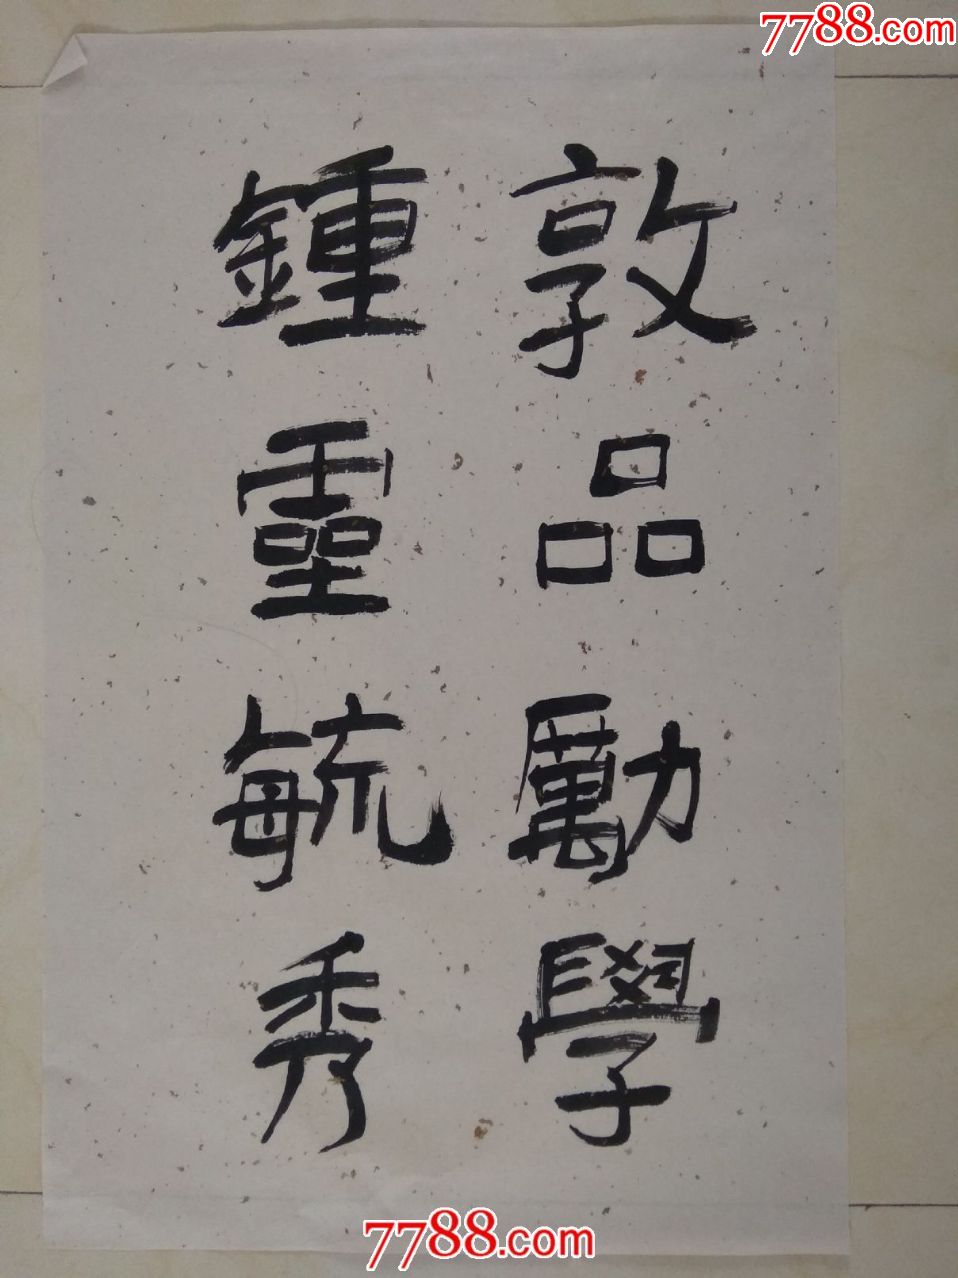 7788.com
敦品勵學
鍾靈毓秀
7788.com